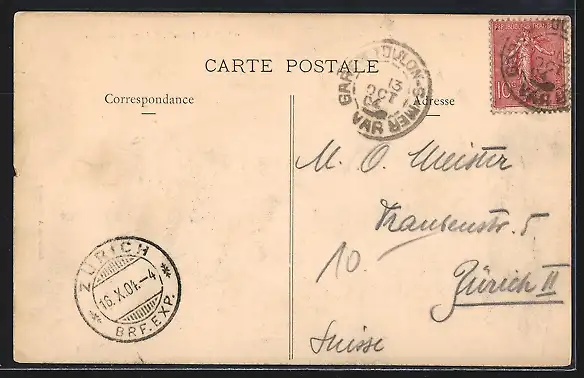 CARTE POSTALE
Correspondance
Adresse
GARE TOULON-S-MER
13
OCT
04
VAR
10
M. O. Meister
Traubenstr. 5
10.
Zürich II
Suisse
ZÜRICH
16.X.04.-4
BRF.EXP.